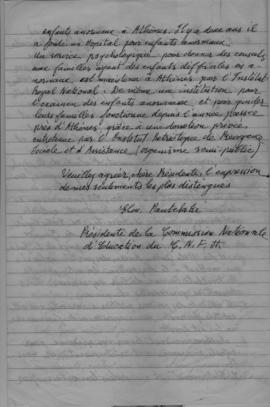 enfants anormaux à Athènes. Il y a deux ans il
a fondé un Hopital pour enfants anormaux
Un service psychologique pour donner des conseils
aux familles ayant des enfants difficiles ou a-
normaux, est à Athènes par l'Institut
Royal National. De même une institution pour
l'examen des enfants anormaux et pour guider
leurs familles fonctionne depuis l'année passée
près d'Athènes grâce à une donation privée,
par l'Institut Patriotique de Prévoyance
Sociale et d'Assistance (organisme semi-public)
Veuillez agréer, chère Présidente, l'expression
de mes sentiments les plus distingués
Présidente de la Commission Nationale
d'Education du C.N.F.H.